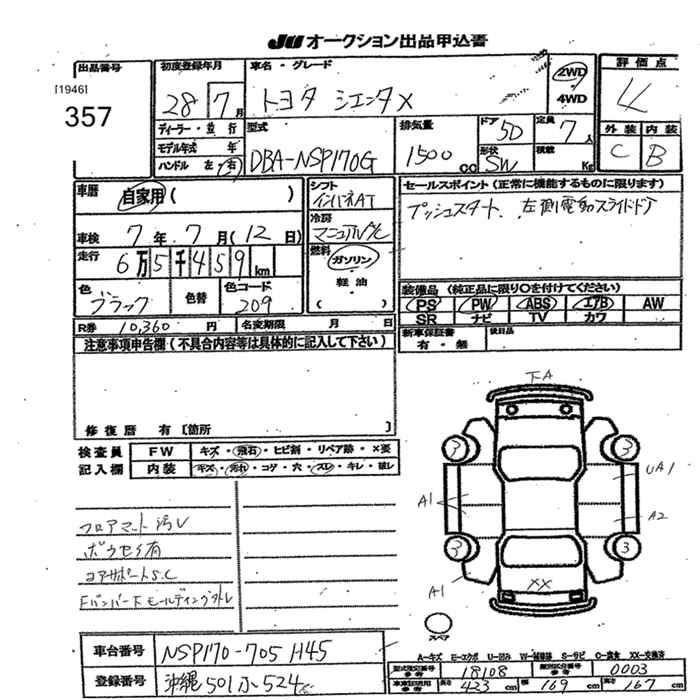 JU オークション出品申込書
出品番号
[1946]
357
初度登録年月
28 7月
ディーラー・並行
モデル年式 年
ハンドル 左・右
車名・グレード
トヨタ シエンタX
2WD
4WD
評価点
4
外装 内装
C B
型式
DBA-NSP170G
排気量
1500 cc
ドア 5D
形状 SW
定員 7人
積載 Kg
車歴 自家用 ( )
車検 7年 7月 ( 12 日)
走行 6万5千459km
色 ブラック
色替
色コード 209
R券 10,360 円
名変期限 月 日
シフト インパネAT
冷房
燃料
ガソリン
軽油
( )
セールスポイント (正常に機能するものに限ります)
プッシュスタート 左側電動スライドドア
装備品 (純正品に限り○を付けてください)
PS PW ABS エアB AW
SR ナビ TV カワ
新車保証書
有・無
後日品
注意事項申告欄 (不具合内容等は具体的に記入して下さい)
修復歴 有〔箇所 〕
検査員 記入欄
FW キズ・飛石・ヒビ割・リペア跡・×要
内装 キズ・汚れ・コゲ・穴・スレ・キレ・破レ
フロアマット汚レ
ボウセイ有
コアサポートS.C
Fバンパー下モールディング外レ
下A
3
3
3
3
A1
A1
UA1
A2
XX
スペア
A-キズ E-エクボ U-凹み W-補修跡 S-サビ C-腐食 XX-交換済
車台番号 NSP170-7051145
登録番号 沖縄 501
型式指定番号 18108
類別区分番号 0003
長さ 423 cm 幅 169 cm 高さ 167 cm